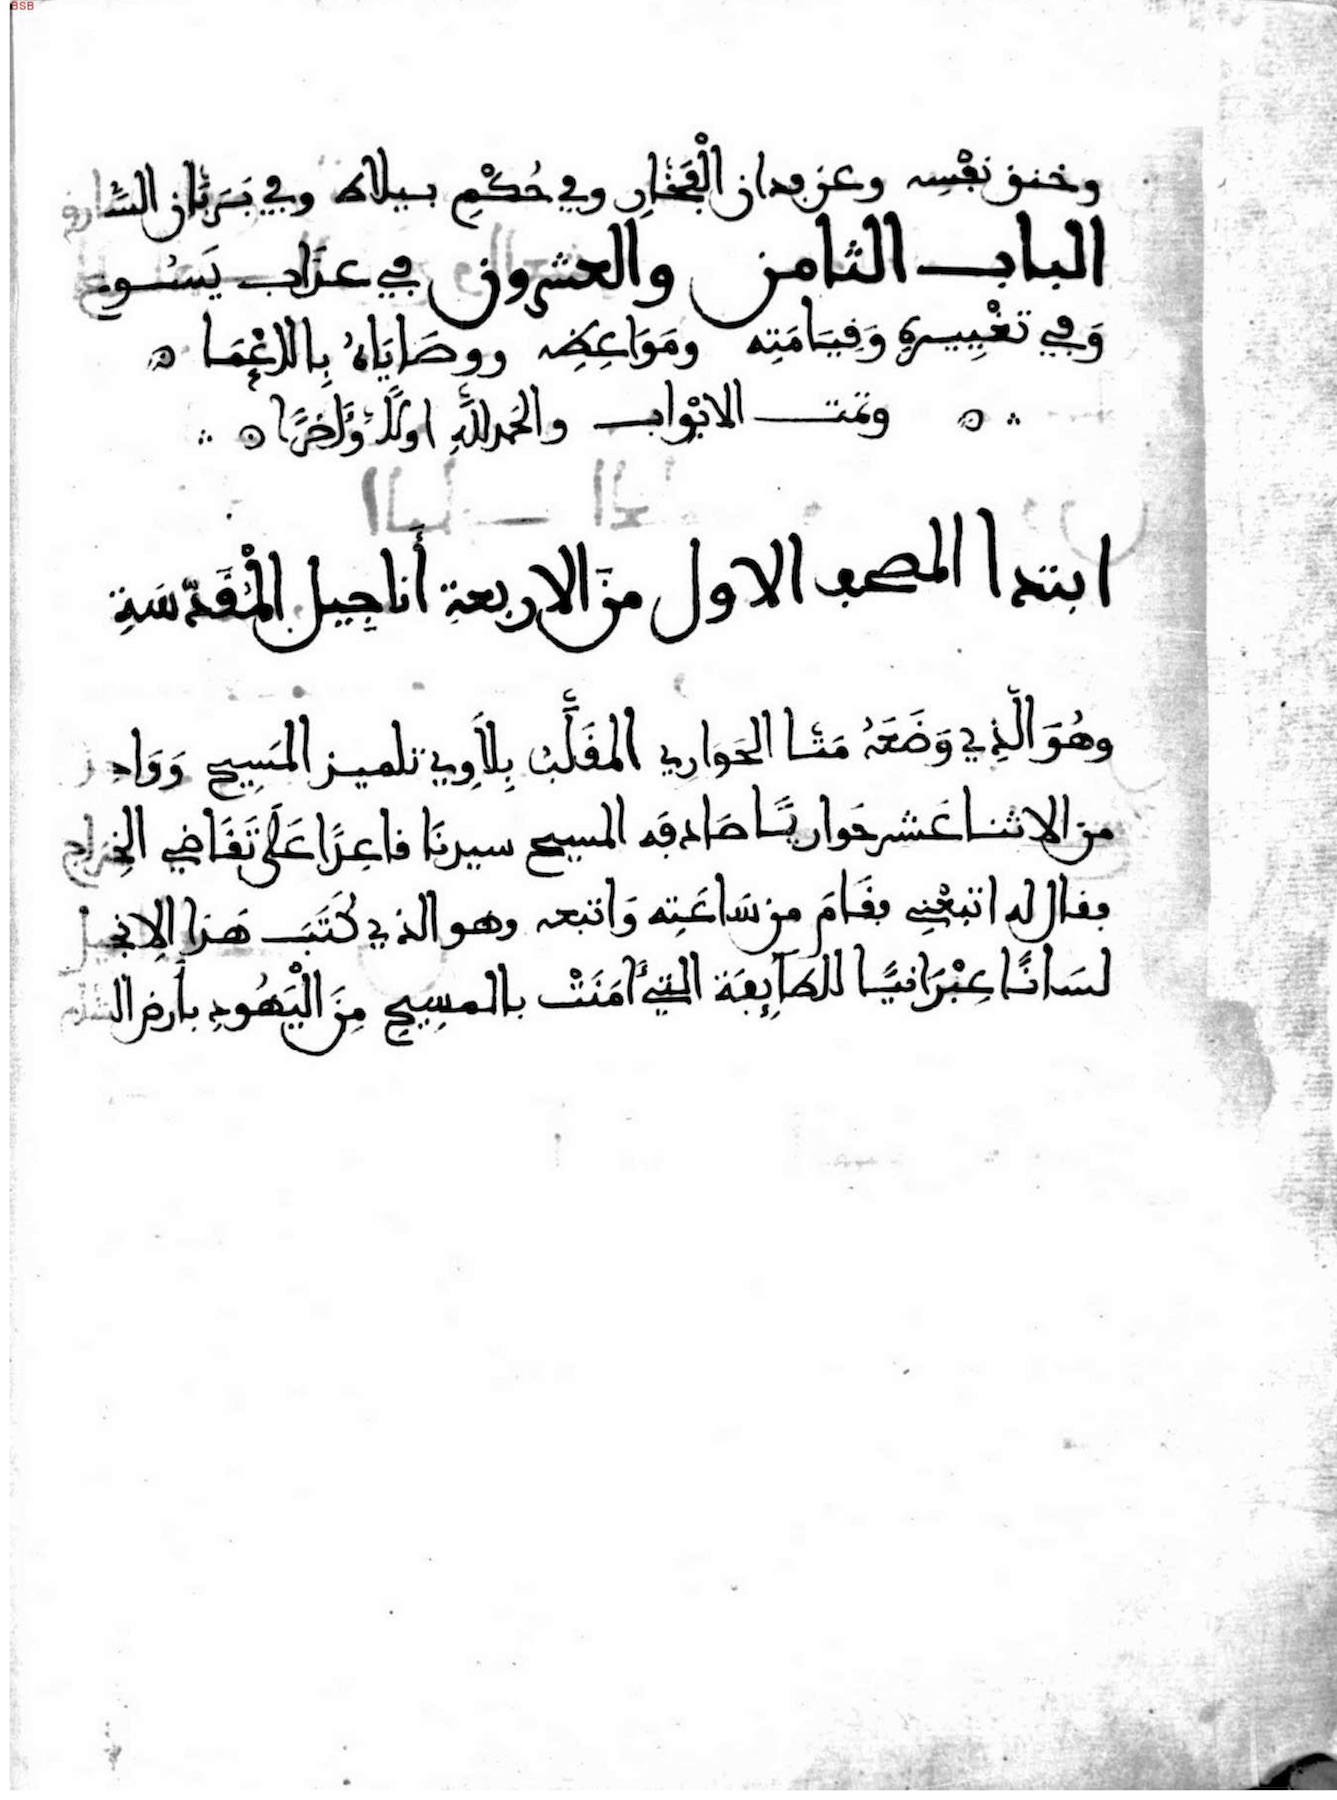 وخنق نَفْسه وعن فدان الْفَخَّارِ وفي حُكْمِ بيلاط وفي بَرَبَّان السَّارق
الباب الثامن والعشرون في عذَاب يَسُوع
وَفِي تغْيِيرهِ وَقِيَامَتِه ومَوَاعِظِه ووصَايَاهُ بِالاعْمَا
وتمت الابْواب والحَمد لِلَّهِ اولًا وَّءَاخرًا
ابتدا المصحف الاول منَ الاربعةِ أناجِيل الْمُقَدّسَةِ
وهُوَ الَّذِي وَضَعَهُ مَتَّا الحَوَاري المقَلَّبُ بِلَاوِي تلميذ المَسِيح وَوَاحد
منَ الاثنا عَشر حَواريَّا صَادفه المسيح سيدنَا قاعِدًا عَلَى تَقَاضِي الخِرَاج
فقال له اتبعْنِي فقَامَ من سَاعَتِه وَاتبعه وهو الذي كَتَبَ هَذا الِانجيل
لسَانًا عِبْرَانيًّا للطَآيِفَة التِي ءَامَنَتْ بالمسِيحِ مِنَ الْيَهُودِ بأرض الشام
BSB